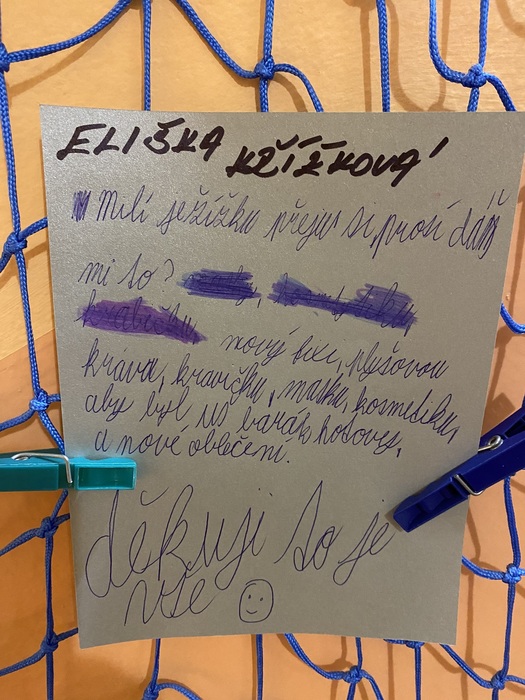 ELIŠKA KŽÍŽKOVÁ
Milí ježížku přeju si, prosí dáš
mi to?
nový fixi, plyšovou
kráva, kravičku, masku, kosmetiku,
aby byl už barák hotový,
a nové oblečení.
děkuji to je
vše